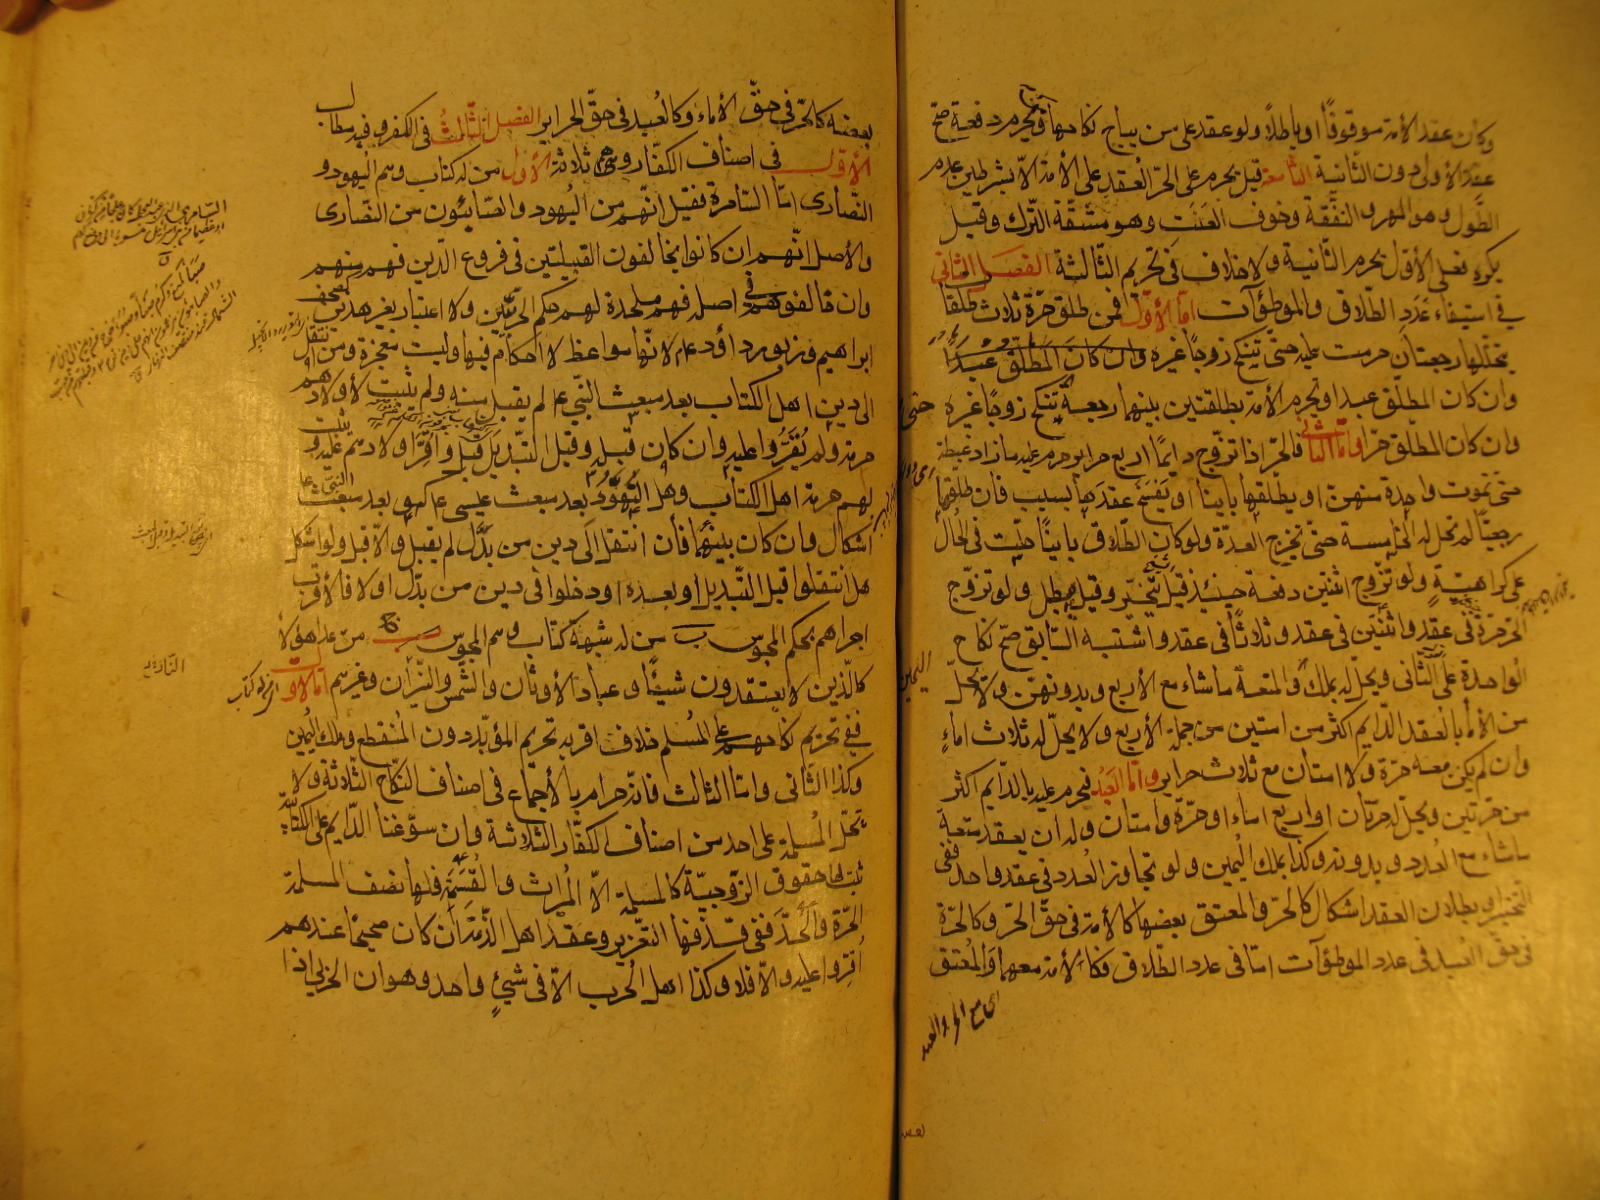 وكان عقد الأمة موقوفًا او باطلًا ولو عقد على من يباح نكاحها ومحرم دفعة صحّ
عقد الأولى دون الثانية التاسعة قيل يحرم على الحرّ العقد على الأمة الّا بشرطين عدم
الطَّول وهو المهر و النفقة وخوف العنت وهو مشقّة الترك وقيل
يكره فعلى الأول يحرم الثانية ولا خلاف فى تحريم الثالثة الفصل الثانى
فى استيفاء عدد الطلاق والموطؤآت امّا الأوّل فمن طلق حرّة ثلاث طلقات
يتخلّلها رجعتان حرمت عليه حتّى تنكح زوجًا غيره وان كان المطلّق عبدًا
وان كان المطلّق عبدا وتحرم الأمة بطلقتين بينهما رجعة حتى تنكح زوجًا غيره
وان كان المطلق حرّا وامّا الثانى فالحرّ اذا تزوّج دايمًا اربع حراير حرم عليه ما زاد غبطة
حتى تموت واحدة منهنّ او يطلّقها باينا او يفسخ عقدها بسبب فان طلقها
رجعيّا لم تحل له الخامسة حتّى تخرج العدّة ولو كان الطّلاق باينًا حلّت فى الحال
على كراهيّةٍ ولو تزوّج اثنتين دفعة حينئذ قيل يتخيّر وقيل يبطل ولو تزوّج
الحرّ حرّة فى عقدٍ واثنتين فى عقد وثلاثًا فى عقد واشتبه السّابق صحّ نكاح
الواحدة على الثانى ويحلّ له بملك و المتعة ما شاء مع الأربع وبدونهنّ ولا يحلّ
من الأماء بالعقد الدّايم اكثر من امتين من جملة الأربع ولا يحلّ له ثلاث اماءٍ
وان لم يكن معه حرّة ولا امتان مع ثلاث حراير وامّا العبد فيحرم عليه بالدّايم اكثر
من حرّتين ويحلّ له حرّتان او اربع اماء او حرّة وامتان وله ان يعقد متعة
ما شاء مع العدد وبدونه وكذا بملك اليمين ولو تجاوز العدد فى عقد واحد ففى
التخيير او بطلان العقد اشكال كالحرّ والمعتق بعضها كالأمة فى حقّ الحرّ وكالحرّة
فى حقّ العبد فى عدد الموطؤآت امّا فى عدد الطّلاق فكالأمة معهما والمعتق
اى مع الحرّ والعبد
بعضه
بعضه كالحرّ فى حقّ الأماء وكالعبد فى حقّ الحراير الفصل الثالث فى الكفر وفيه مطالب
الأوّل فى اصناف الكفّار وهم ثلاثة الأول من له كتاب وهم اليهود و
النصارى امّا السّامرة فقيل انّهم من اليهود والصّابئون من النّصارى
والأصل انّهم ان كانوا يخالفون القبيلتين فى فروع الدّين فهم منهم
وان خالفوهم فى اصل فهم ملحدة لهم حكم الحربيّين ولا اعتبار بغير هذين كصحف
ابراهيم وزبور داؤد عم لانّها مواعظ لا احكام فيها وليست معجزة ومن انتقل
الى دين اهل الكتاب بعد مبعث النّبى عم لم يقبل منه ولم يثبت لأولادهم
حرمة ولم يُقَرّوا عليه وان كان قبله وقبل التبديل قبل واقرّوا ولادهم عليه وثبت
لهم حرمة اهل الكتاب وهل التّهوّد بعد مبعث عيسى عم كهو بعد مبعث النبىّ عم
اشكال وان كان بينهما فان انتقل الى دين من بدّل لم يقبل والّا قبل ولو اشكل
هل انتقلوا قبل التّبديل او بعده او دخلوا فى دين من بدّل اولا فالأقرب
اجراهم بحكم المجوس ب من له شبهة كتاب وهم المجوس ج من عدا هؤلاء
كالّذين لا يعتقدون شيئًا وعباد الأوثان والشمس والنيران وغيرهم امّا الأول
ففى تحريم نكاحهم على المسلم خلاف اقربه تحريم المؤبّد دون المنقطع وملك اليمين
وكذا الثانى وامّا الثالث فانه حرام بالأجماع فى اصناف النكاح الثلاثة ولا
تحلّ المسلمة على احد من اصناف الكفّار الثلاثة وان سوّغنا الدّايم على الكتابيّة
ثبت لها حقوق الزّوجيّة كالمسلمة الّا الميراث والقسمة فلها نصف المسلمة
الحرّة والحدّ ففى قذفها التعزير وعقد اهل الذّمّة ان كان صحيحًا عندهم
اقرّوا عليه والّا فلا وكذا اهل الحرب الّا فى شىءٍ واحد وهو ان الحربى اذا